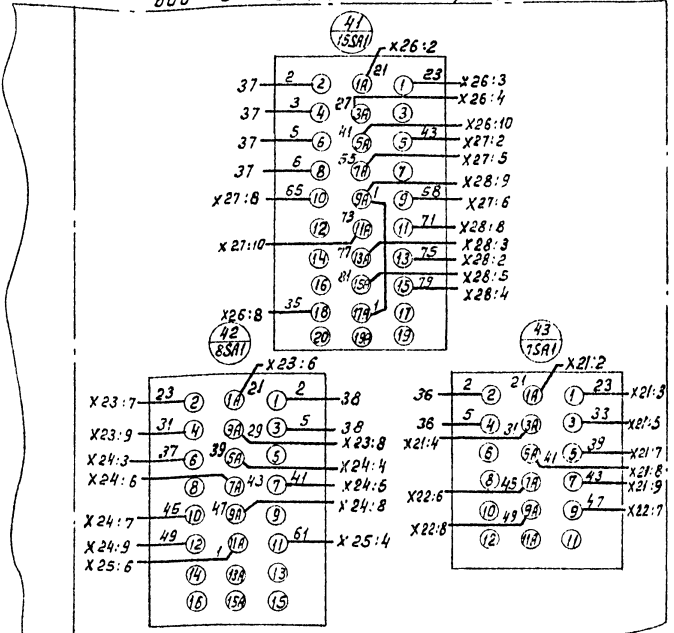 41
15SA1
X26:2
37 2 2 1A 21 1 23 X26:3
37 3 4 27 3A 3 X26:4
37 5 6 41 5A 5 43 X26:10
X27:2
37 6 8 55 7A 7 X27:5
X27:8 65 10 9A 1 9 58 X28:9
X27:6
12 73 11A 11 71 X28:8
X27:10
14 77 13A 13 75 X28:3
X28:2
16 81 15A 15 79 X28:5
X28:4
X26:8 35 18 17A 1 17
20 19A 19
42
8SA1
X23:6
X23:7 23 2 1A 21 1 2 38
X23:9 31 4 3A 29 3 5 38
X23:8
X24:3 37 6 39 5A 5 X24:4
X24:6 8 7A 43 7 41 X24:5
X24:7 45 10 47 9A 9 X24:8
X24:9 49 12 11A 11 61 X25:4
X25:6 1
14 13A 13
16 15A 15
43
7SA1
X21:2
36 2 2 21 1A 1 23 X21:3
36 5 4 31 3A 3 33 X21:5
X21:4
6 5A 41 5 39 X21:7
X21:8
X22:6 8 45 7A 7 43 X21:9
X22:8 10 49 9A 9 47 X22:7
12 11A 11